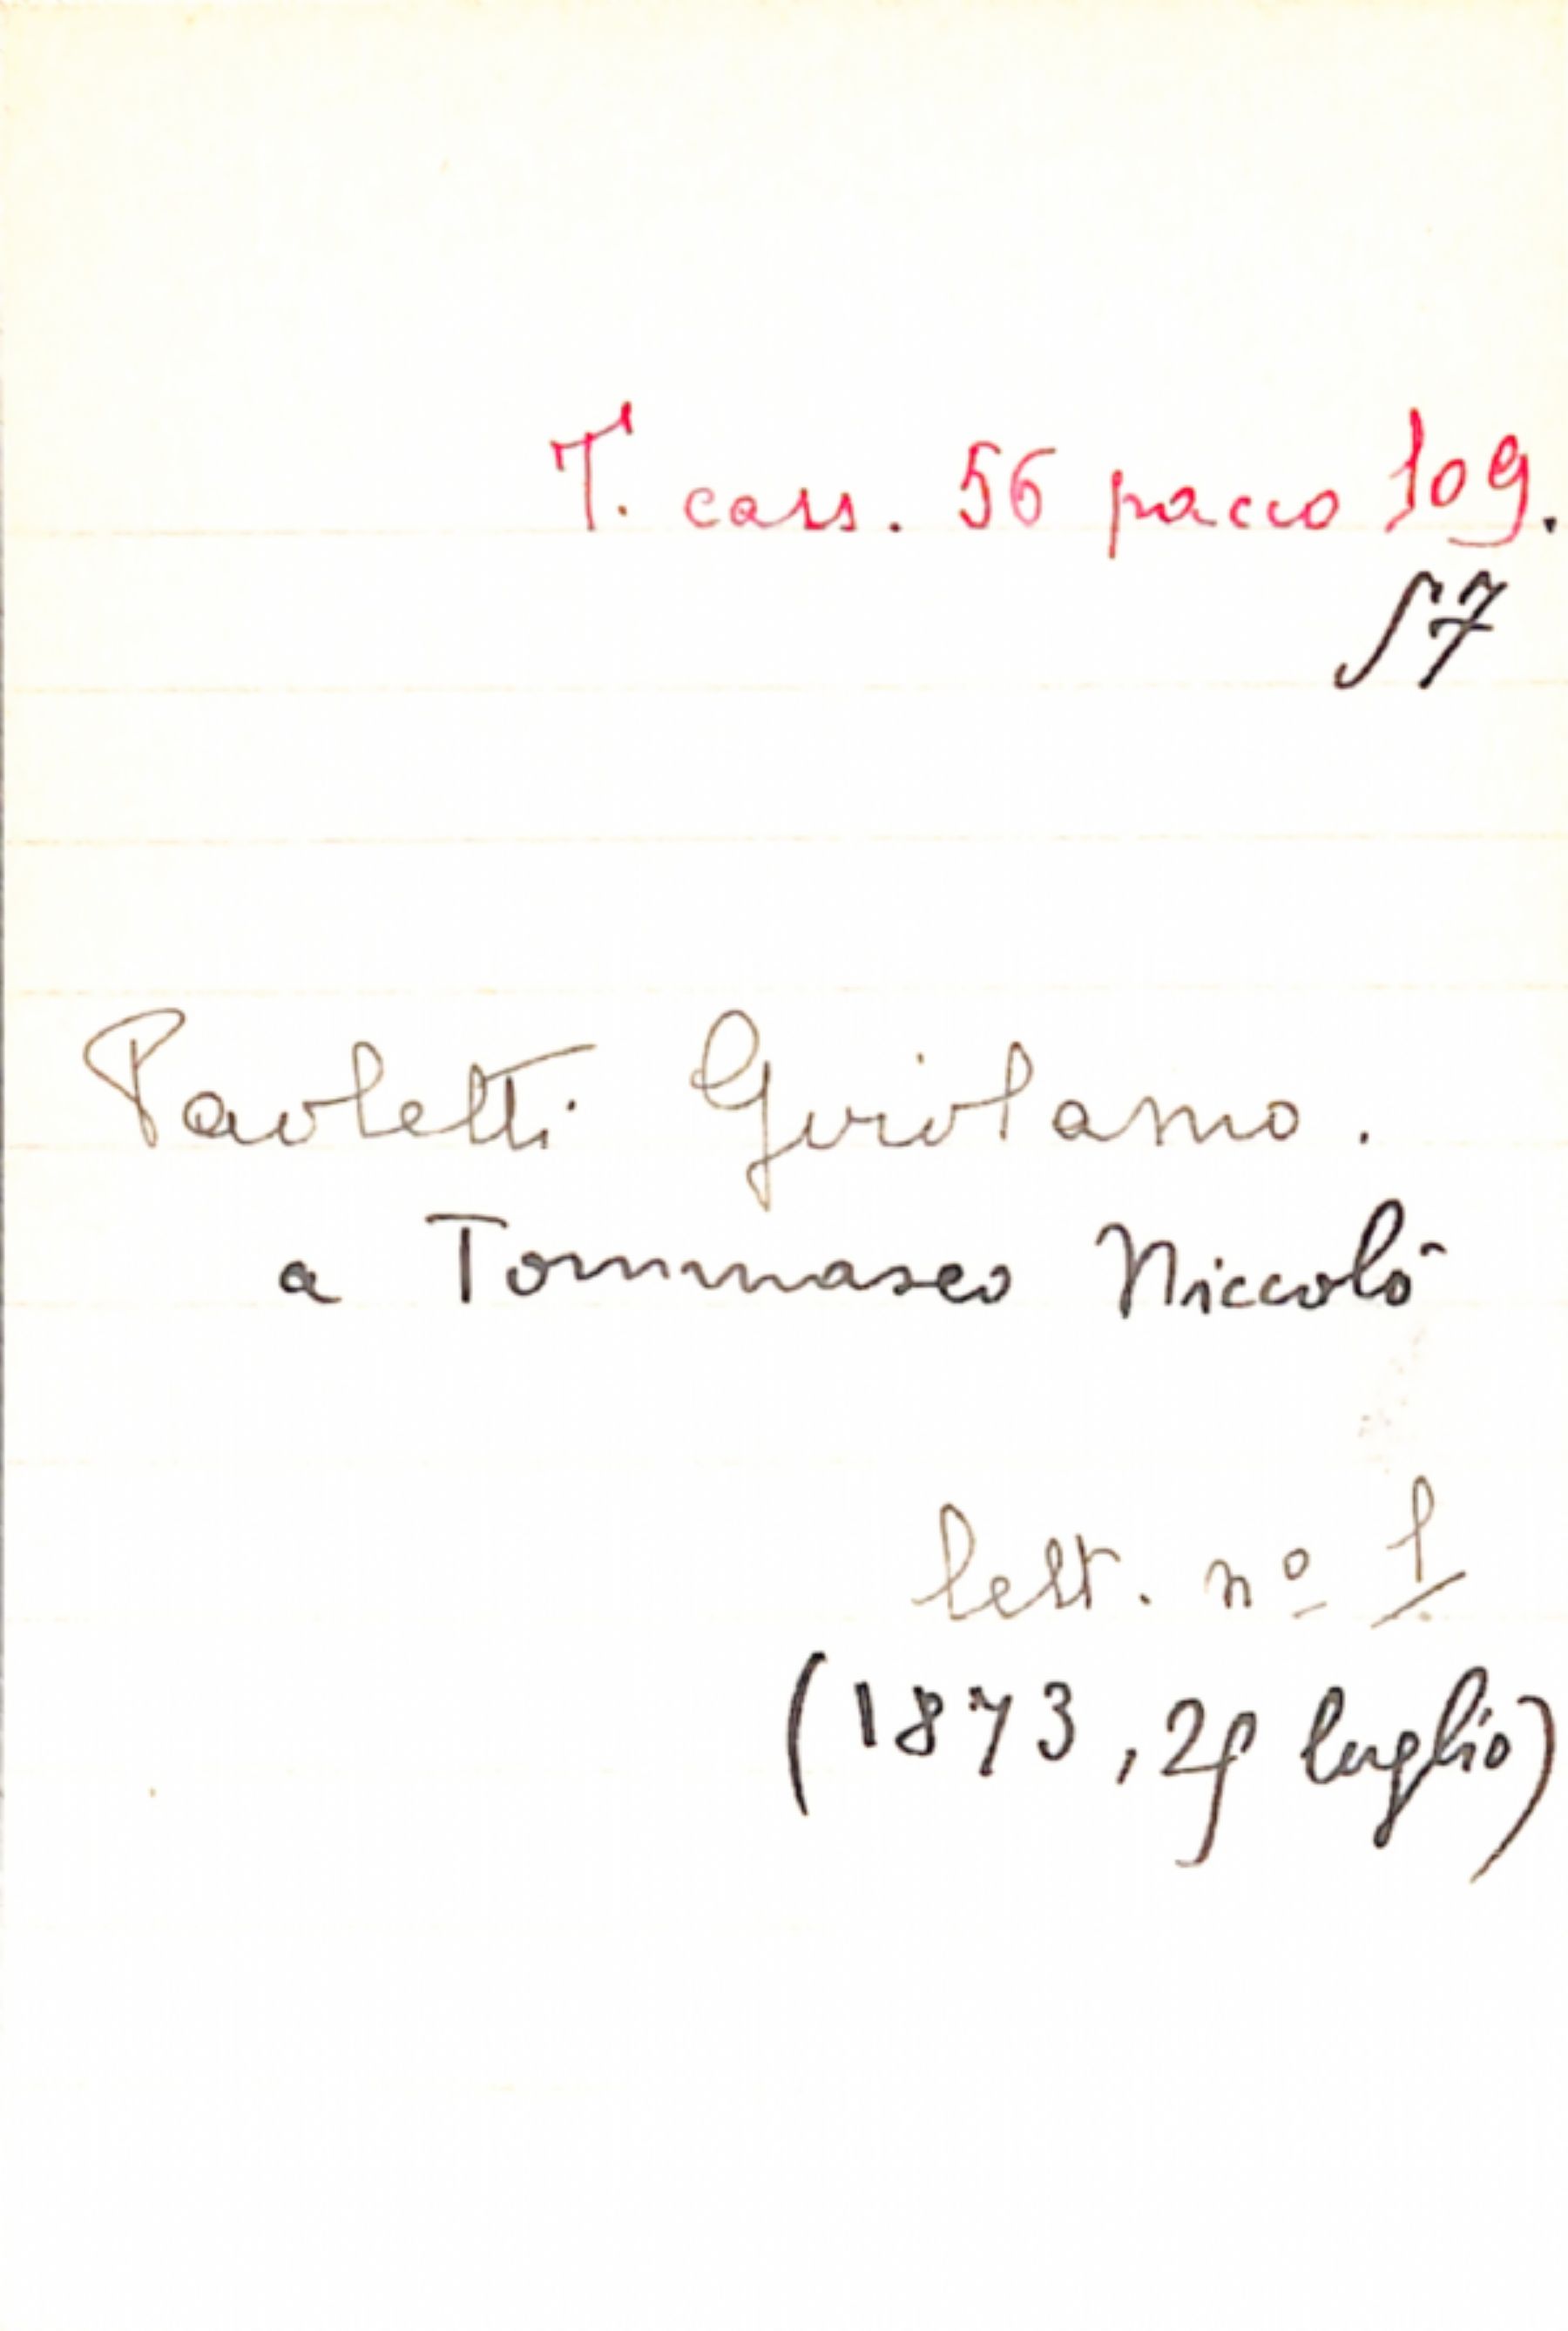 T. cass. 56 pacco 109.
57
Paoletti Girolamo.
a Tommaseo Niccolò
lett. nº 1
(1873, luglio)